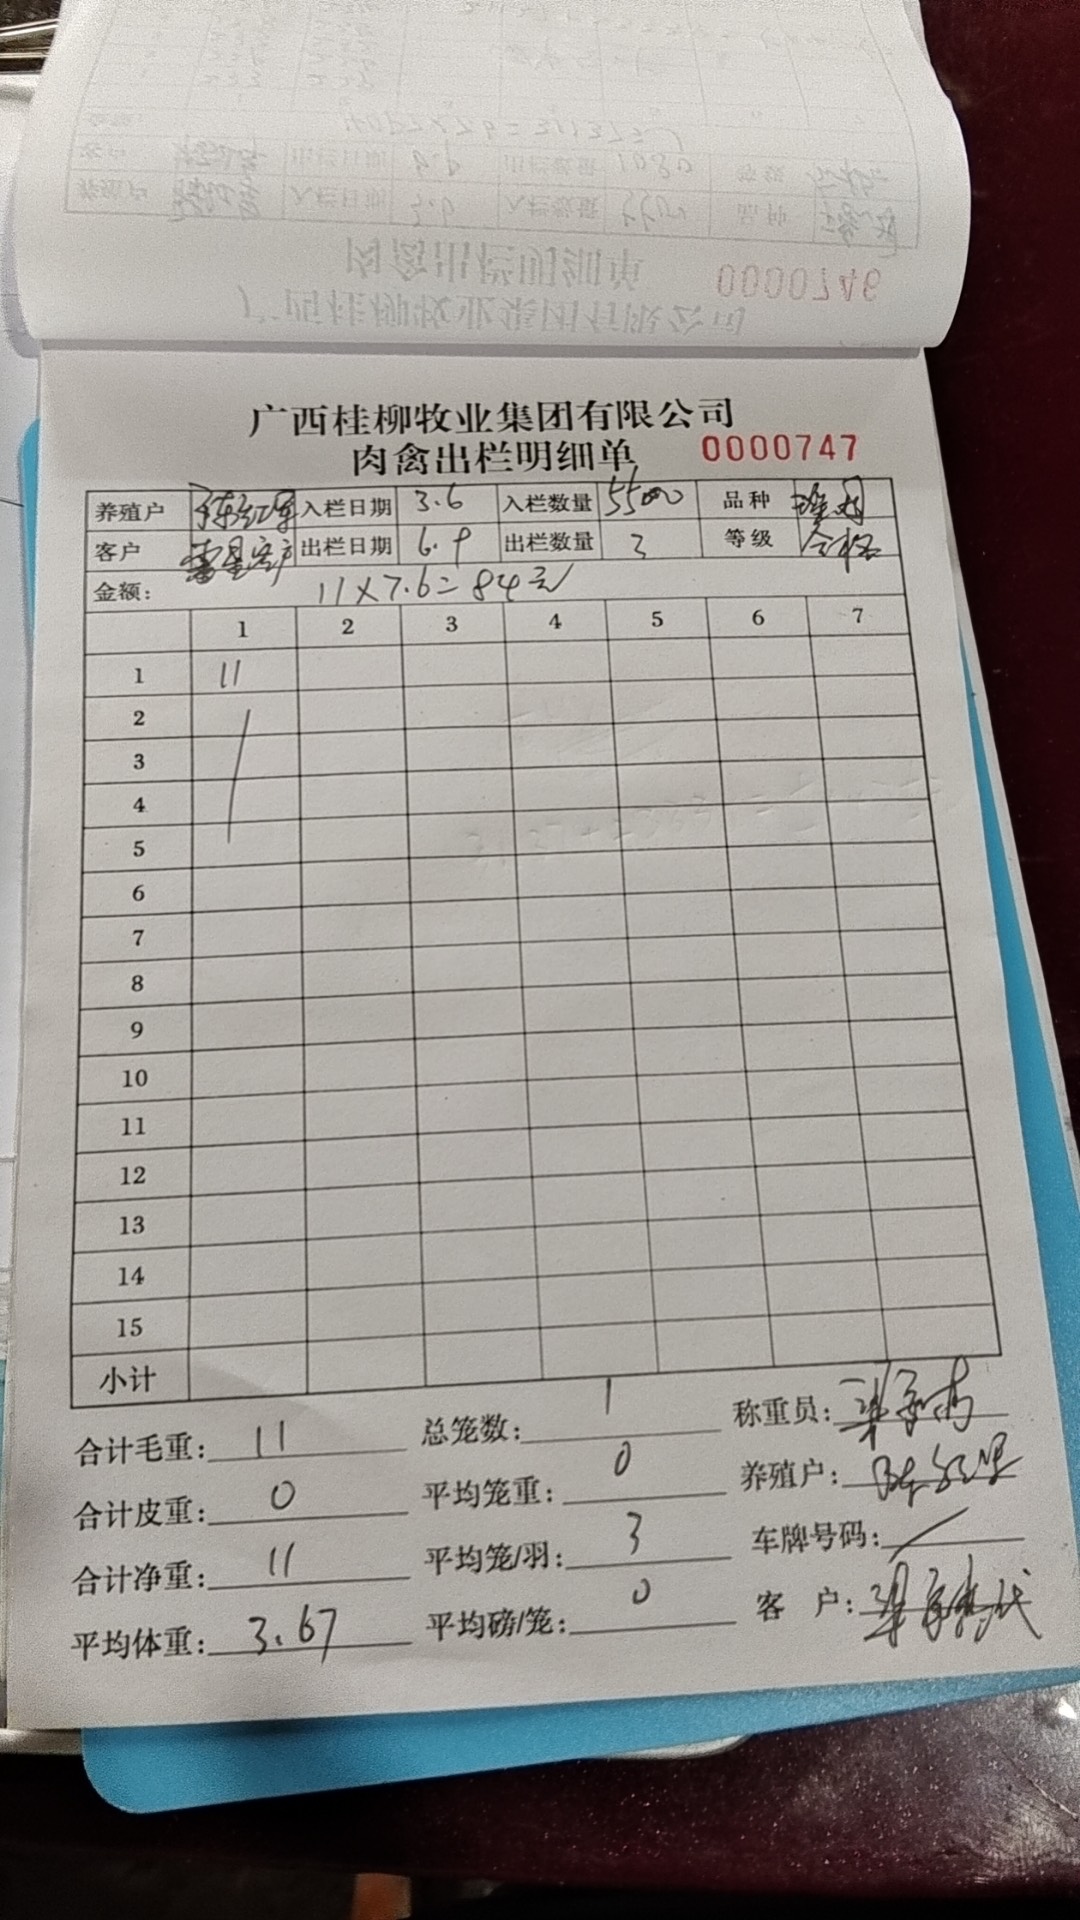 0000746
广西桂柳牧业集团有限公司
肉禽出栏明细单 0000747
养殖户 入栏日期 3.6 入栏数量 5500 品种
客户 零星客户 出栏日期 6.9 出栏数量 3 等级 合格
金额: 11×7.6=84元
1 2 3 4 5 6 7
1 11
2
3
4
5
6
7
8
9
10
11
12
13
14
15
小计
合计毛重: 11 总笼数: 1 称重员:
合计皮重: 0 平均笼重: 0 养殖户:
合计净重: 11 平均笼/羽: 3 车牌号码: /
平均体重: 3.67 平均磅/笼: 0 客 户: